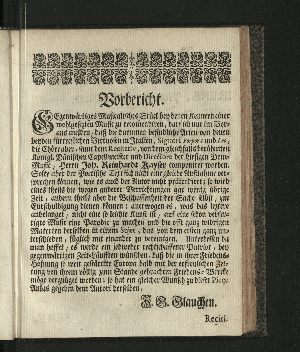 Vorbericht.
Gegenwärtiges Musicalisches Stück bey denen Kennern einer
wohlgesetzten Music zu recommendiren, darf ich nur im Vor-
aus melden, daß die darinnen befindliche Arien von denen
beyden fürtrefflichen Virtuosen in Italien, Signori
die Chöre aber, samt dem Recitativ, von dem gleichfalls berühmten
Königl. Dänischen Capellmeister und Directore der hiesigen Dom-
Music, Herrn Joh. Reinhardt Kayser componiret worden.
Solte aber der Poetische Text sich nicht eine gleiche Aufnahme ver-
sprechen können, wie es auch der Autor nicht prätendiret; so wird
eines theils die wegen anderer Verrichtungen gar wenig übrige
Zeit, andern theils aber die Beschaffenheit der Sache selbst, zur
Entschuldigung dienen können; aber was das letztere
anbelanget, nicht eine so leichte Kunst ist, auf eine schon verfer-
tigte Music eine Parodie zu machen, und die offt gantz widrigen
Materien derselben in einem, das von dem ersten gantz un-
terschieden, füglich mit einander zu vereinigen. Unterdessen da
man hoffet, es werde ein jedweder rechtschaffener Patriot, bey
gegenwärtigen Zeit-Läufften wünschen, daß die in ihrer Friedens-
Hofnung so weit gestärckte Europa bald mit der erfreulichen Zei-
tung von ihrem völlig zum Stande gebrachten Friedens-Wercke
möge vergnüget werden; so hat ein gleicher Wunsch zu dieser Piece
Anlas gegeben dem Autori derselben,
Glauchen.
Reciti-